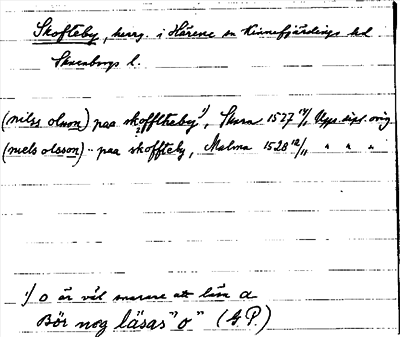 Skofteby, herrg. i Härene sn Kinnefjärdings hd
Skaraborgs l.
(nilss olsson) paa skofftheby 1), Skara 1527 14/11 Upps. dipl. orig
(niels olsson) " paa skoffteby, Malma 1528 12/11 " " "
1/ o är väl snarare att läsa a
Bör nog läsas "o" (G.P.)